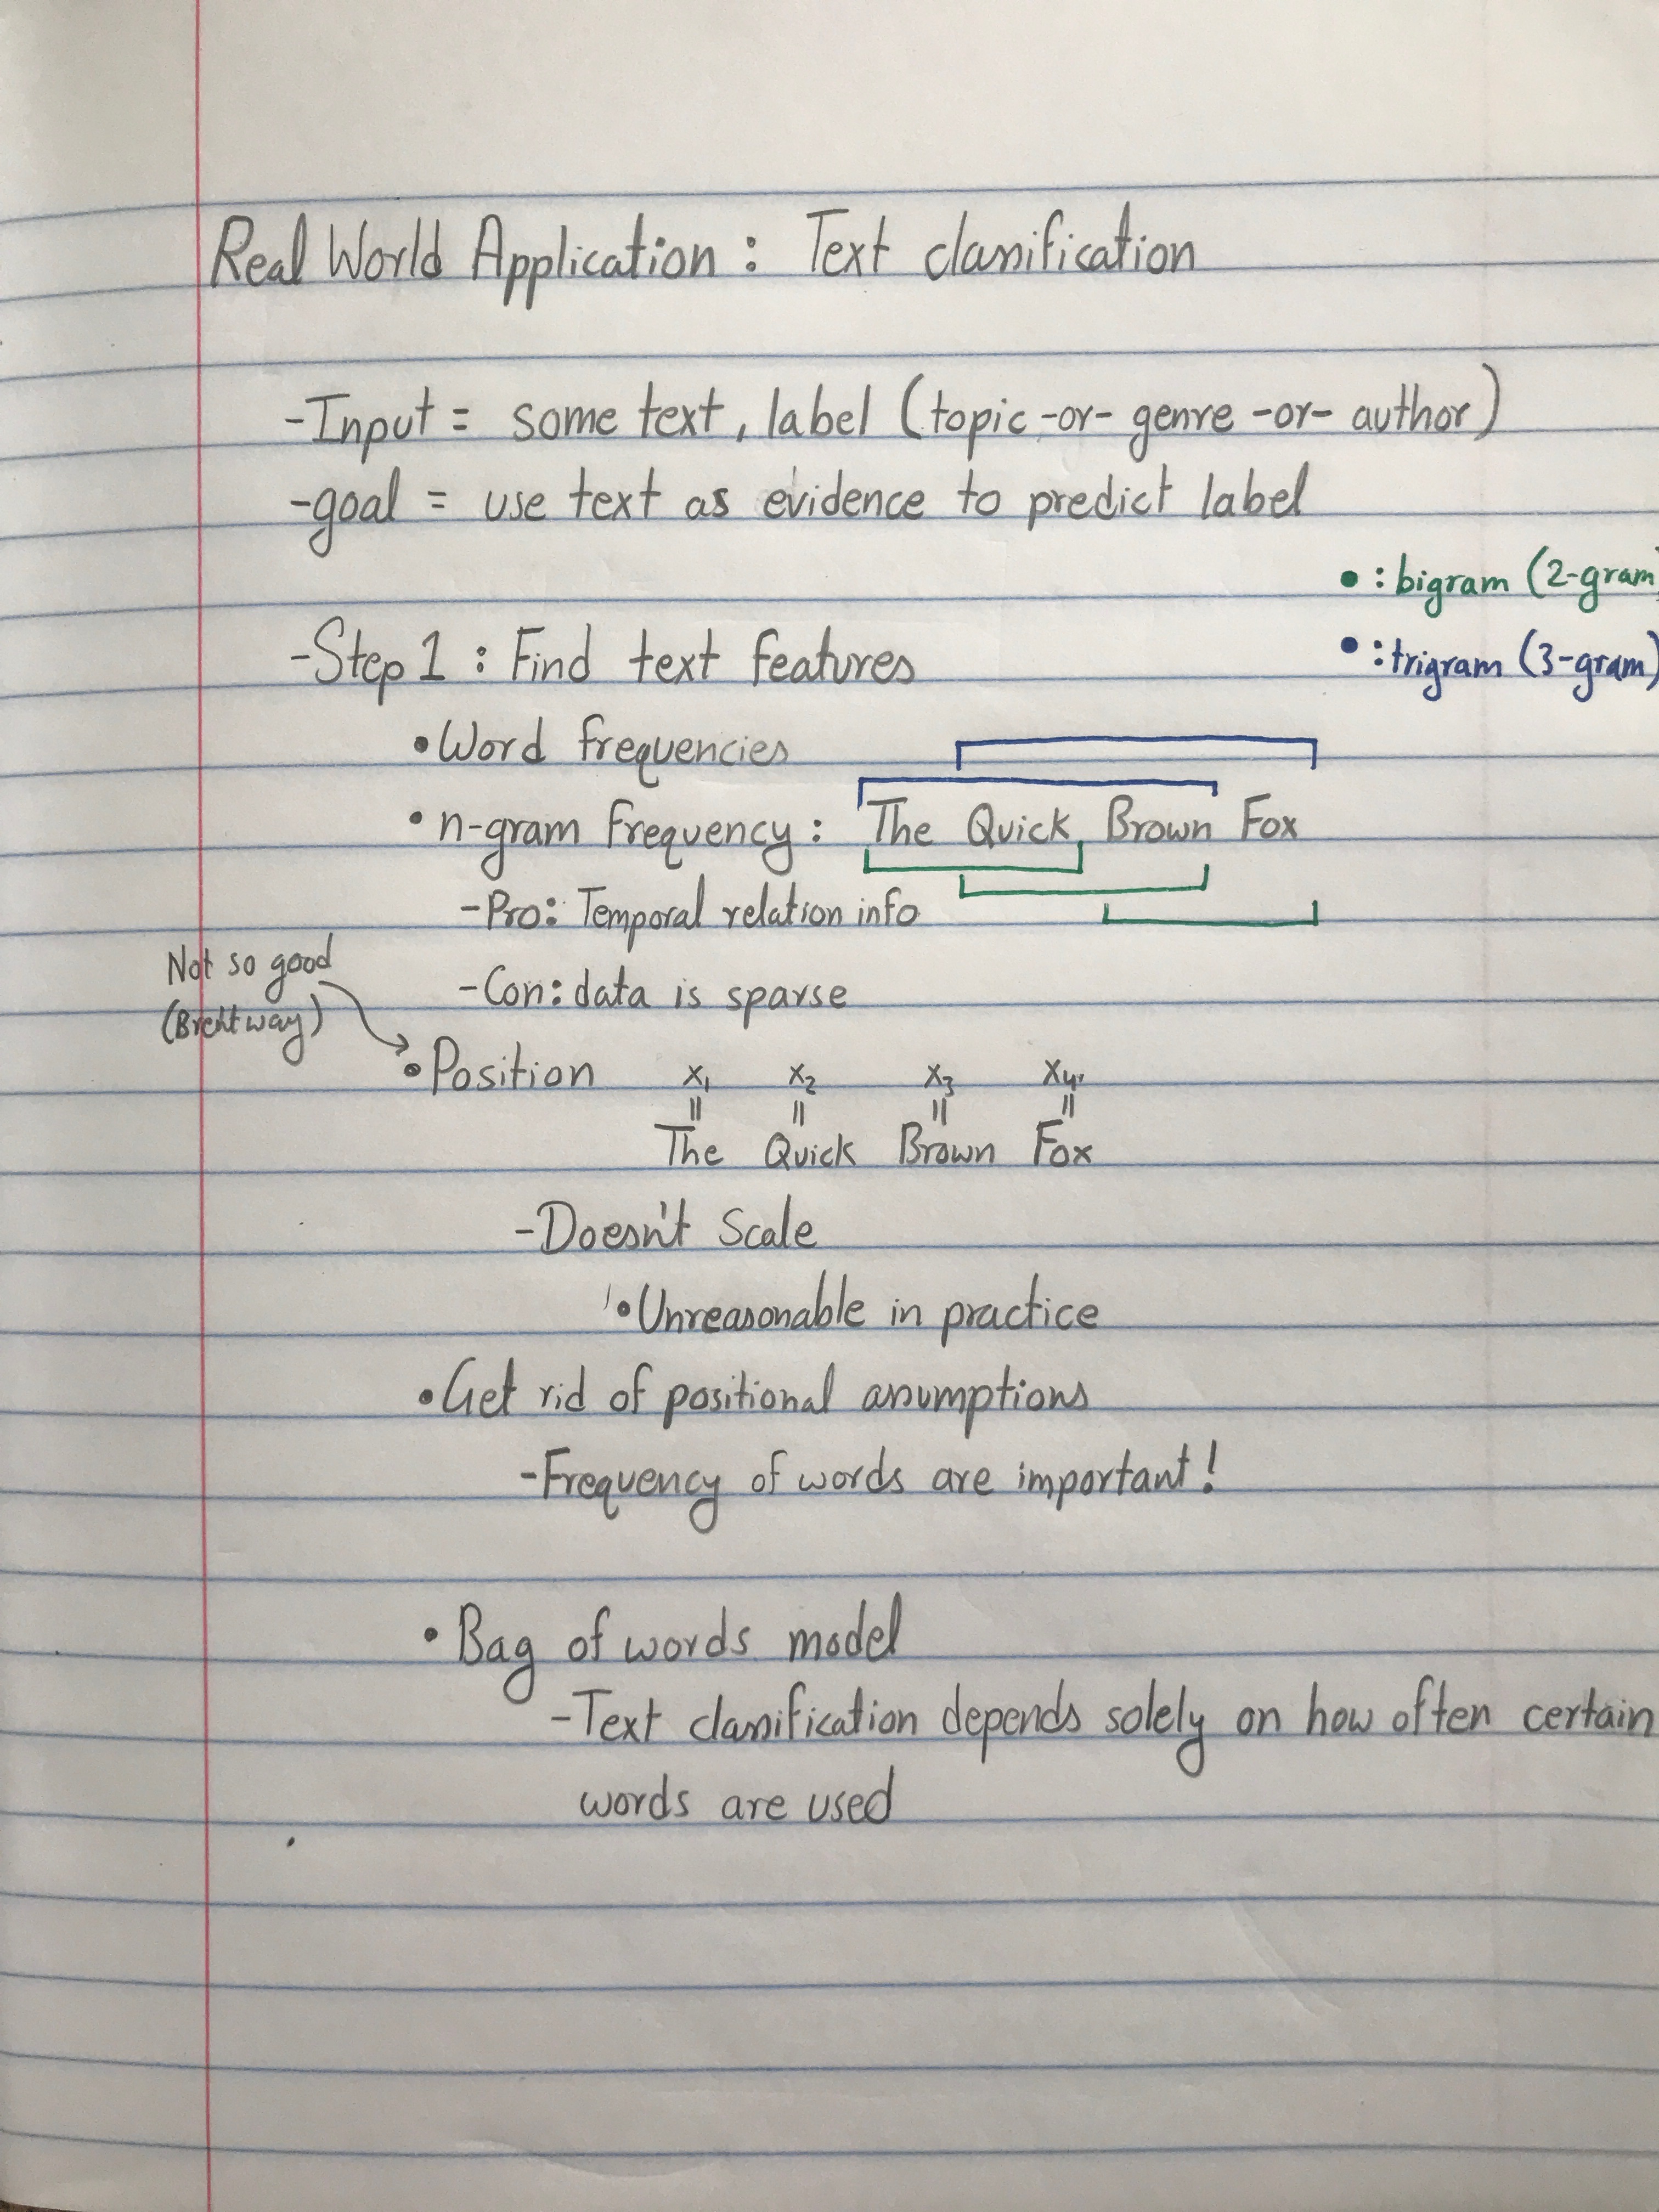 Real World Application : Text classification
-Input = some text, label (topic -or- genre -or- author)
-goal = use text as evidence to predict label
• : bigram (2-gram)
-Step 1 : Find text features
• : trigram (3-gram)
• Word frequencies
• n-gram frequency : The Quick Brown Fox
-Pro: Temporal relation info
Not so good
-Con: data is sparse
(Brent way)
• Position x₁ x₂ x₃ x₄
= = = =
The Quick Brown Fox
-Doesn't Scale
• Unreasonable in practice
• Get rid of positional assumptions
-Frequency of words are important!
• Bag of words model
-Text classification depends solely on how often certain
words are used